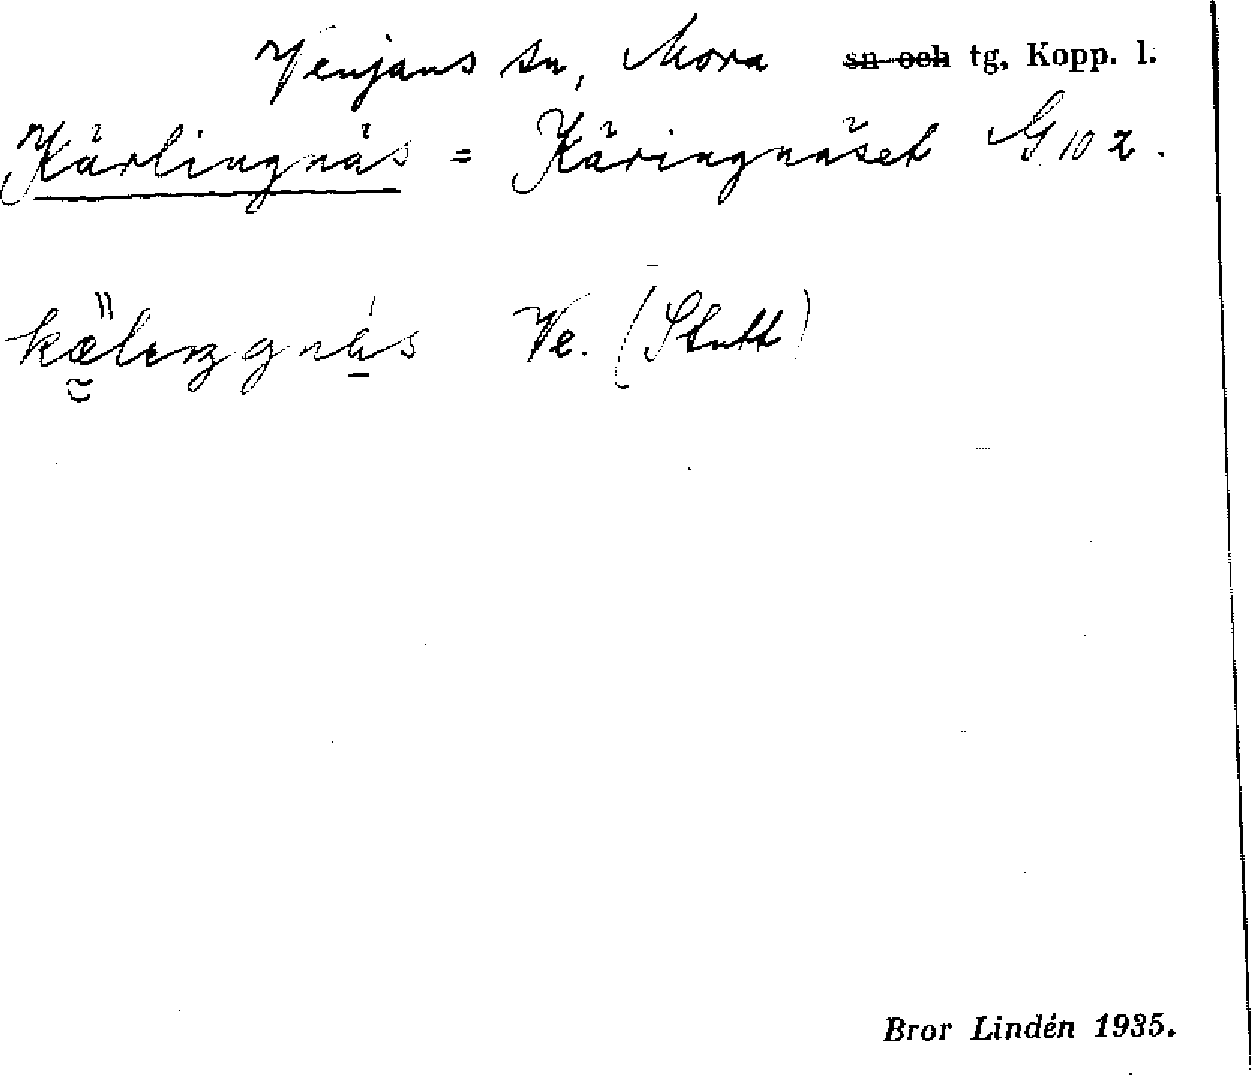 Venjans sn, Mora sn och tg. Kopp. l.
Kärlingnäs = Käringnäset G 10 z.
kä̰lıŋgnä̱s Ve. (Slutt)
Bror Lindén 1935.